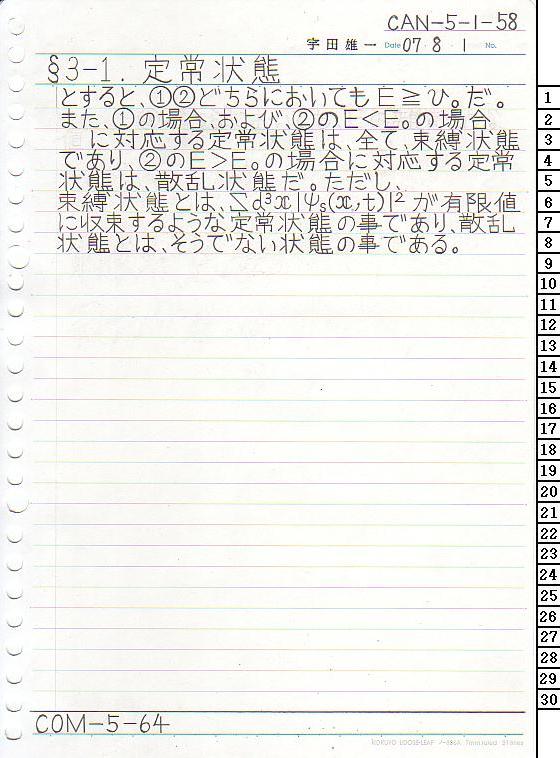 CAN-5-1-58
宇田雄一 Date 07・8・1 No.
§3-1. 定常状態
とすると、①②どちらにおいてもE≧υ₀だ。
また、①の場合、および、②のE<E₀の場合
に対応する定常状態は、全て、束縛状態
であり、②のE>E₀の場合に対応する定常
状態は、散乱状態だ。ただし、
束縛状態とは、∑d³x|ψs(x,t)|²が有限値
に収束するような定常状態の事であり、散乱
状態とは、そうでない状態の事である。
COM-5-64
KOKUYO LOOSE-LEAF 7mm ruled 31 lines
1
2
3
4
5
6
7
8
9
10
11
12
13
14
15
16
17
18
19
20
21
22
23
24
25
26
27
28
29
30